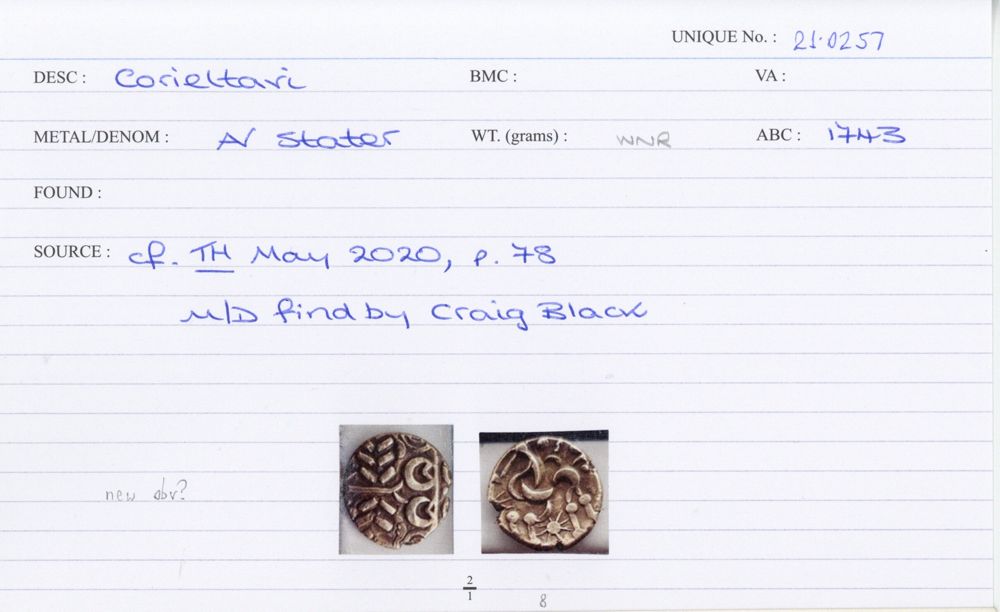 UNIQUE No. : 21.0257
DESC : Corieltavi BMC : VA :
METAL/DENOM : AV Stater WT. (grams) : WNR ABC : 1743
FOUND :
SOURCE : cf. TH May 2020, p. 78
M/D find by Craig Black
new obv?
2
1
8